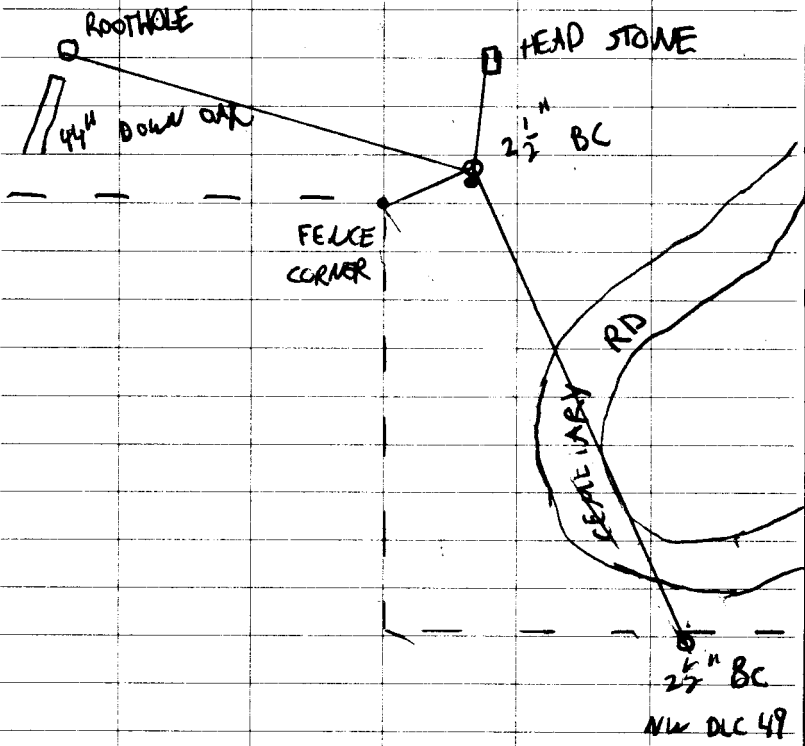 ROOTHOLE
HEAD STONE
44" DOWN OAK
2 1/2" BC
FENCE
CORNER
RD
CEMETARY
2 1/2" BC
NW DLC 49